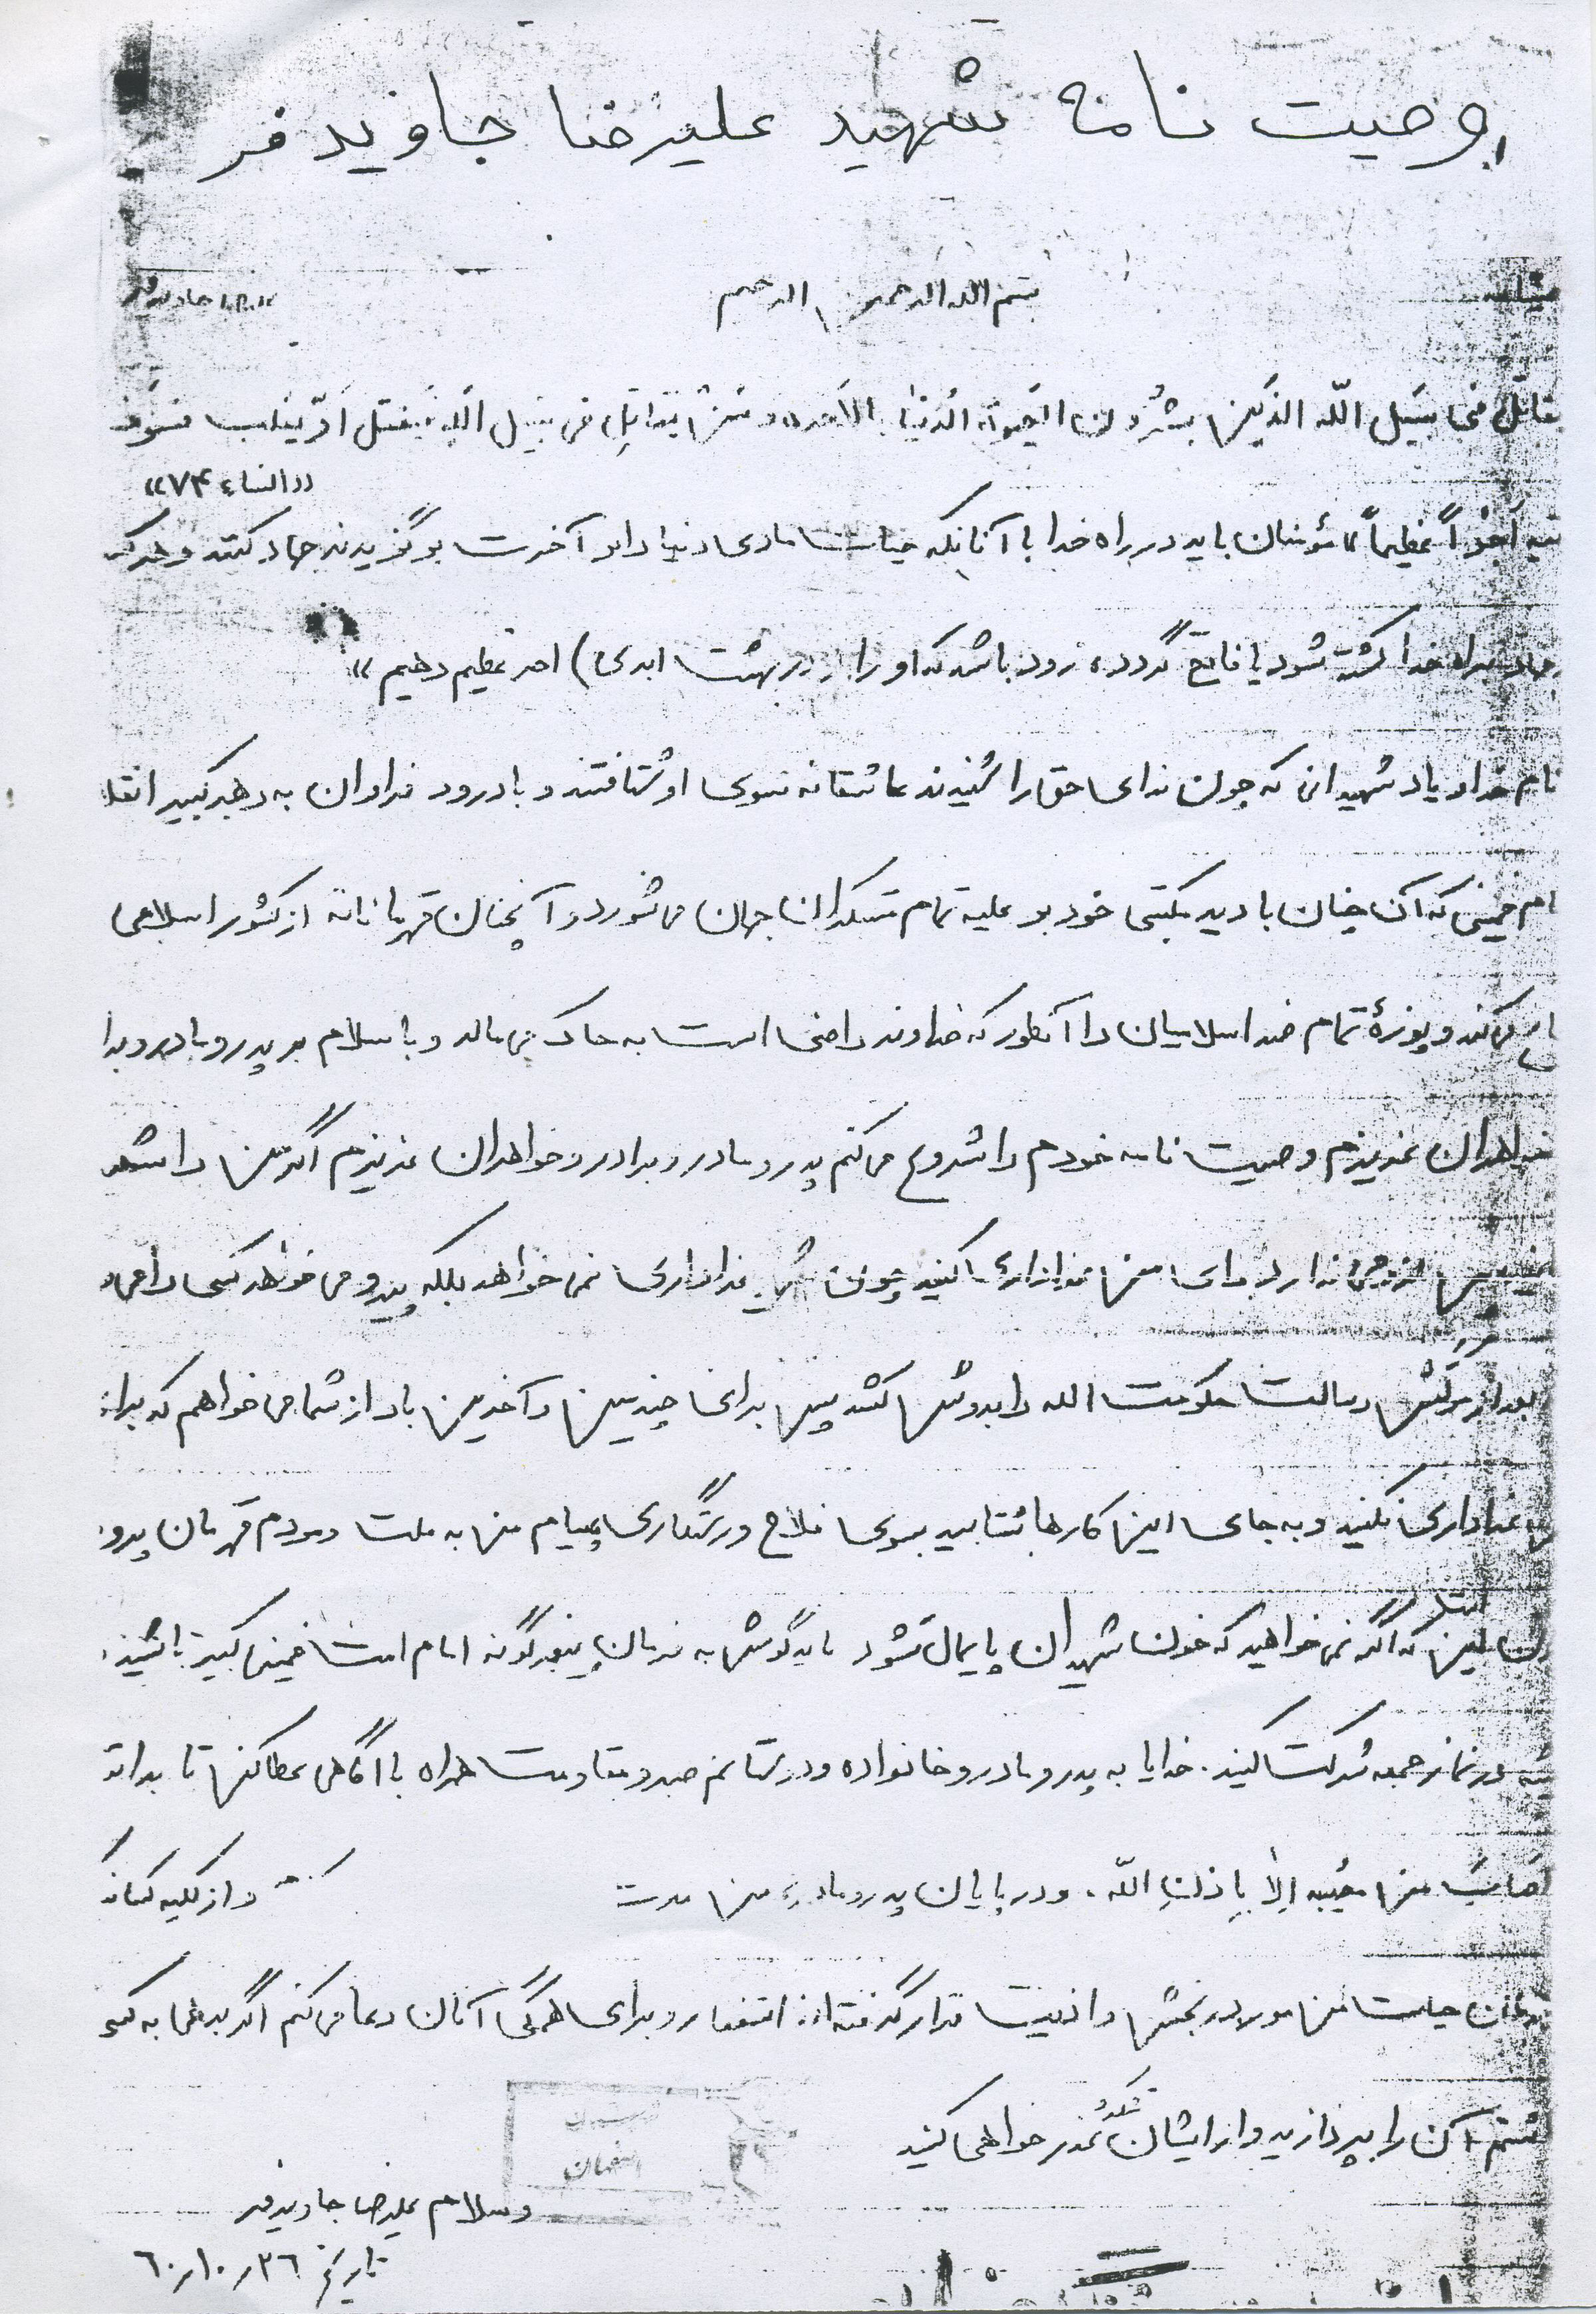 وصیت نامه شهید علیرضا جاوید فر
بسم الله الرحمن الرحیم
جاویدفر
قاتل فی سبیل الله الذین یشرون الحیوة الدنیا بالاخره و من یقاتل فی سبیل الله فیقتل او یغلب فسوف
((النساء ۷۴))
اجراً عظیماً مؤمنان باید در راه خدا با آنانکه حیات مادی دنیا را بر آخرت برگزیدند جهاد کنند و هر که
در جهاد براه خدا کشته شود یا فاتح گردد، زود باشد که او را (در بهشت ابدی) اجر عظیم دهیم))
نام خدا و یاد شهیدانی که چون ندای حق را شنیدند عاشقانه بسوی او شتافتند و با درود فراوان به رهبر کبیر انقلا
امام خمینی که آن چنان با دید مکتبی خود بر علیه تمام ستمگران جهان می شورد و آنچنان قهرمانانه از کشور اسلامی
می کند و پوزهٔ تمام ضد اسلامیان را آنطور که خداوند راضی است به خاک می مالد و با سلام بر پدر و مادر و برا
خواهران عزیزم وصیت نامه خودم را شروع می کنم پدر و مادر و برادر و خواهران عزیزم اگر من را شهید
ندارد برای من عزاداری کنید چون عزاداری نمی خواهد بلکه پیرو می خواهد کسی را می
بعد از مرگش رسالت حکومت الله را بدوش کشد پس برای چندمین و آخرین بار از شما می خواهم که برا
من عزاداری نکنید و به جای این کارها بشتابید بسوی فلاح و رستگاری پیام من به ملت و مردم قهرمان پرو
این است که اگر نمی خواهید که خون شهیدان پایمال شود باید گوش به فرمان پیغمبر گونه امام امت خمینی کبیر باشید،
در نماز جمعه شرکت کنید. خدایا به پدر و مادر و خانواده و دوستانم صبر و مقاومت همراه با آگاهی عطا کن تا بدانند
اصاب من مصیبه الا باذن الله. و در پایان پدر و مادر من مدت و از کلیه کسانی
من مورد رنجش و اذیت قرار گرفته اند استغفار و برای همگی آنان دعا می کنم اگر بدهی به کسی
داشتم آن را بپردازید و از ایشان تشکر و عذر خواهی کنید
اصفهان
وسلام علیرضا جاویدفر
تاریخ ۶۰/۱۰/۲۶